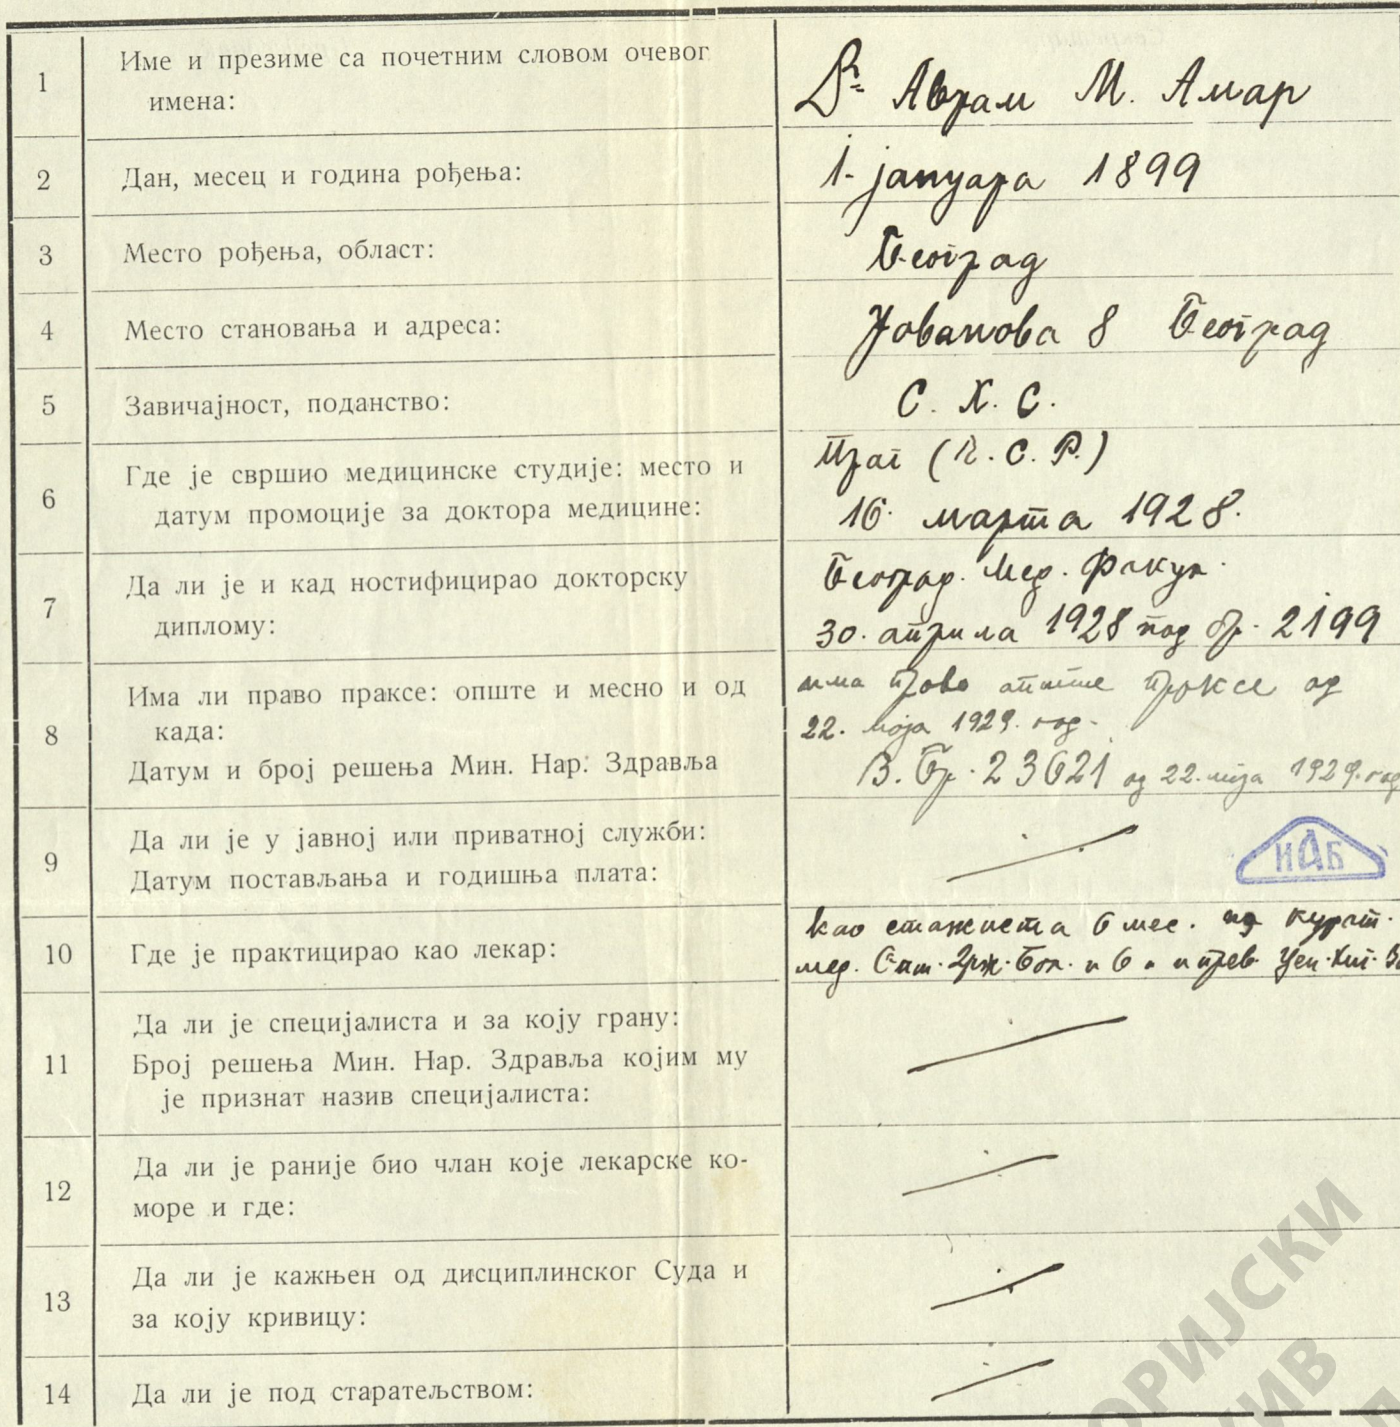 1
Име и презиме са почетним словом очевог
имена:
Dr. Аврам М. Амар
2
Дан, месец и година рођења:
1. јануара 1899
3
Место рођења, област:
Београд
4
Место становања и адреса:
Јованова 8 Београд
5
Завичајност, поданство:
С. Х. С.
6
Где је свршио медицинске студије: место и
датум промоције за доктора медицине:
Праг (Ч. С. Р.)
16. марта 1928.
7
Да ли је и кад ностифицирао докторску
диплому:
Београд. Мед. Факул.
30. априла 1928 под бр. 2199
8
Има ли право праксе: опште и месно и од
када:
Датум и број решења Мин. Нар. Здравља
има право опште праксе од
22. маја 1929. год.
В. Бр. 23621 од 22. маја 1929. год
9
Да ли је у јавној или приватној служби:
Датум постављања и годишња плата:
ИАБ
10
Где је практицирао као лекар:
као стажиста 6 мес.
мед. Опш. Држ. Бол. и 6
11
Да ли је специјалиста и за коју грану:
Број решења Мин. Нар. Здравља којим му
је признат назив специјалиста:
12
Да ли је раније био члан које лекарске ко-
море и где:
13
Да ли је кажњен од дисциплинског Суда и
за коју кривицу:
14
Да ли је под старатељством:
ОРИЈСКИ
ИВ